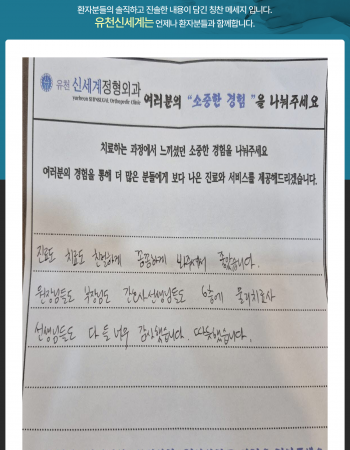 환자분들의 솔직하고 진솔한 내용이 담긴 칭찬 메세지 입니다.
유천신세계는 언제나 환자분들과 함께합니다.
유천 신세계정형외과 여러분의 "소중한 경험"을 나눠주세요
Yucheon SHINSEGAE Orthopedic Clinic
치료하는 과정에서 느끼셨던 소중한 경험을 나눠주세요
여러분의 경험을 통해 더 많은 분들에게 보다 나은 진료와 서비스를 제공해드리겠습니다.
진료도 치료도 친절하게 꼼꼼하게 봐주셔서 좋았습니다.
원장님들도 부장님도 간호사선생님들도 6층에 물리치료사
선생님들도 다들 너무 감사했습니다. 따뜻했습니다.